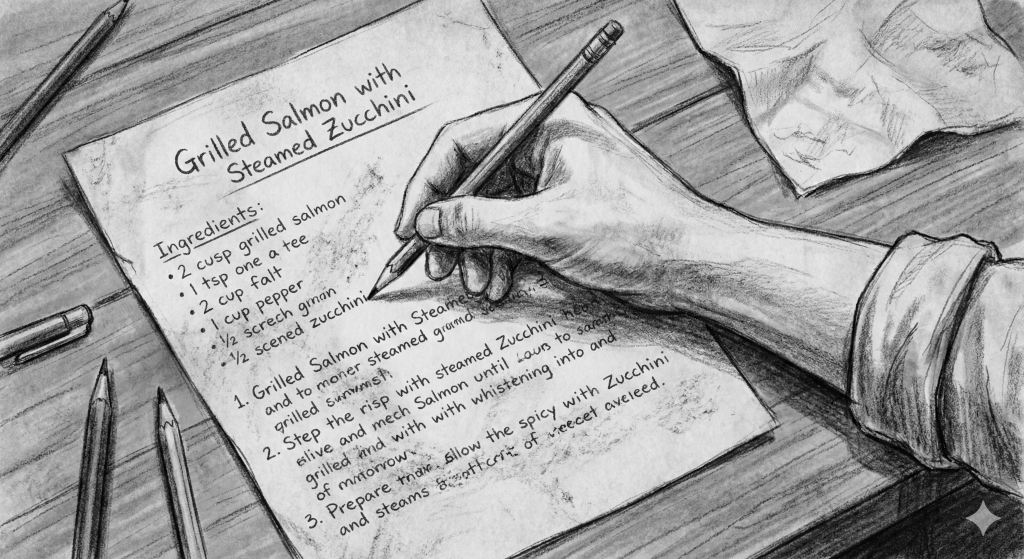 Grilled Salmon with
Steamed Zucchini
Ingredients:
• 2 cusp grilled salmon
• 1 tsp one a tee
• 2 cup falt
• 1 cup pepper
• ½ screch gman
• ½ scened zucchini
1. Grilled Salmon with Steamed
and to moner steamed
grilled
2. Step the risp with steamed Zucchini
slive and mech Salmon until to
grilled mind with with whistening into and
of mimorrow.
3. Prepare allow the spicy with Zucchini
and steams of aveieed.